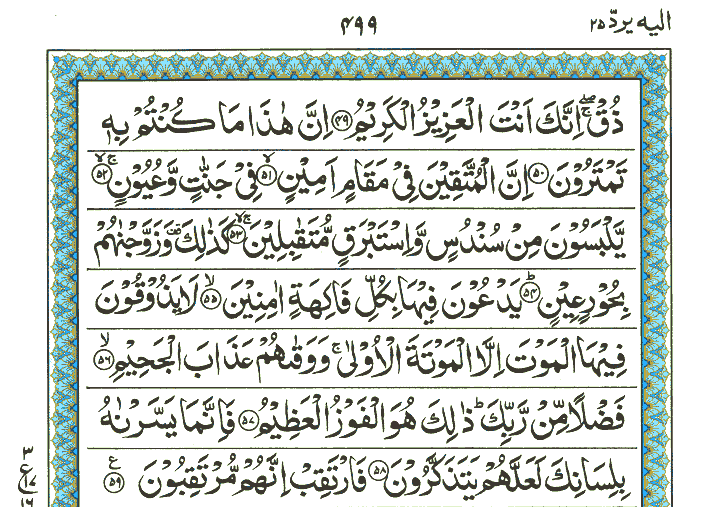 اليه يردّ ٢٥
٤٩٩
ذُقْ ۚۙ اِنَّكَ اَنْتَ الْعَزِيْزُ الْكَرِيْمُ ﴿٤٩﴾ اِنَّ هٰذَا مَا كُنْتُمْ بِهٖ
تَمْتَرُوْنَ ﴿٥٠﴾ اِنَّ الْمُتَّقِيْنَ فِيْ مَقَامٍ اَمِيْنٍ ﴿٥١﴾ۙ فِيْ جَنّٰتٍ وَّعُيُوْنٍ ﴿٥٢﴾ۚۙ
يَّلْبَسُوْنَ مِنْ سُنْدُسٍ وَّاِسْتَبْرَقٍ مُّتَقٰبِلِيْنَ ﴿٥٣﴾ۚۙ كَذٰلِكَ وَزَوَّجْنٰهُمْ
بِحُوْرٍ عِيْنٍ ﴿٥٤﴾ؕ يَدْعُوْنَ فِيْهَا بِكُلِّ فَاكِهَةٍ اٰمِنِيْنَ ﴿٥٥﴾ۙ لَا يَذُوْقُوْنَ
فِيْهَا الْمَوْتَ اِلَّا الْمَوْتَةَ الْاُوْلٰى ۚ وَوَقٰىهُمْ عَذَابَ الْجَحِيْمِ ﴿٥٦﴾ۙ
فَضْلًا مِّنْ رَّبِّكَ ؕ ذٰلِكَ هُوَ الْفَوْزُ الْعَظِيْمُ ﴿٥٧﴾ فَاِنَّمَا يَسَّرْنٰهُ
بِلِسَانِكَ لَعَلَّهُمْ يَتَذَكَّرُوْنَ ﴿٥٨﴾ فَارْتَقِبْ اِنَّهُمْ مُّرْتَقِبُوْنَ ﴿٥٩﴾ع
٣
ع
١٧
١٦